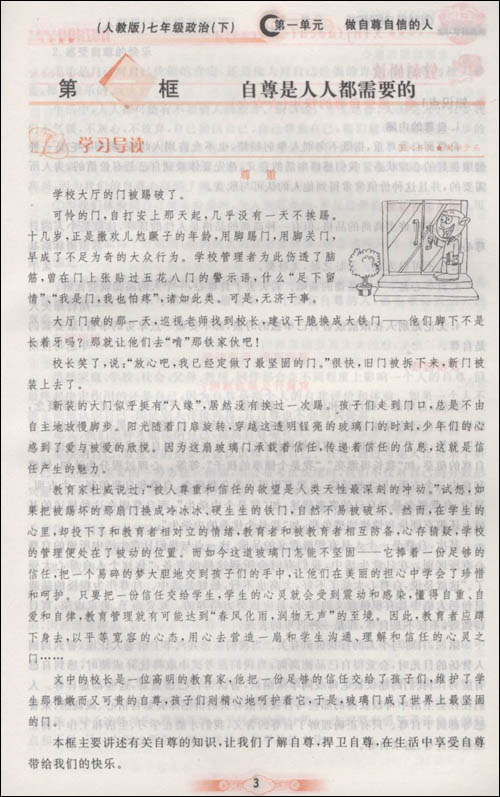 (人教版)七年级政治(下) 第一单元 做自尊自信的人
第 框 自尊是人人都需要的
学习导读
尊重
学校大厅的门被踢破了。
可怜的门,自打安上那天起,几乎没有一天不挨踢。
十几岁,正是撒欢儿尥蹶子的年龄,用脚踢门,用脚关门,
早成了不足为奇的大众行为。学校管理者为此伤透了脑
筋,曾在门上张贴过五花八门的警示语,什么“足下留
情”、“我是门,我也怕疼”,诸如此类。可是,无济于事。
大厅门破的那一天,巡视老师找到校长,建议干脆换成大铁门——他们脚下不是
长着牙吗?那就让他们去“啃”那铁家伙吧!
校长笑了,说:“放心吧,我已经定做了最坚固的门。”很快,旧门被拆下来,新门被
装上去了。
新装的大门似乎挺有“人缘”,居然没有挨过一次踢。孩子们走到门口,总是不由
自主地放慢脚步。阳光随着门扉旋转,穿越这透明锃亮的玻璃门的时刻,少年们的心
感到了爱与被爱的欣悦。因为这扇玻璃门承载着信任,传递着信任的信息,这就是信
任产生的魅力。
教育家杜威说过:“被人尊重和信任的欲望是人类天性最深刻的冲动。”试想,如
果把被踢坏的那扇门换成冷冰冰、硬生生的铁门,自然不易被破坏。然而,在学生的
心里,却投下了和教育者相对立的情绪,教育者和被教育者相互防备,心存猜疑,学校
的管理便处在了被动的位置。而如今这道玻璃门怎能不坚固——它捧着一份足够的
信任,把一个易碎的梦大胆地交到孩子们的手中,让他们在美丽的担心中学会了珍惜
和呵护。只要把一份信任交给学生,学生的心灵就会受到震动和感染,懂得自重、自
爱和自律,教育管理就有可能达到“春风化雨,润物无声”的至境。因此,教育者应蹲
下身去,以平等宽容的心态,用心去营造一扇和学生沟通、理解和信任的心灵之
门……
文中的校长是一位高明的教育家,他把一份足够的信任交给了孩子们,维护了学
生那稚嫩而又可贵的自尊,孩子们则精心地呵护着它,于是,玻璃门成了世界上最坚固
的门。
本框主要讲述有关自尊的知识,让我们了解自尊,捍卫自尊,在生活中享受自尊
带给我们的快乐。
3